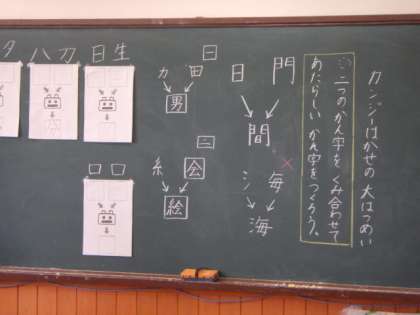 カンジーはかせの 大はつめい
二つのかん字を くみ合わせて
あたらしい かん字をつくろう。
門 日
間
毎 氵
海
一
田 力
男
二
会 糸
絵
日 生
八 刀
夕
口 口